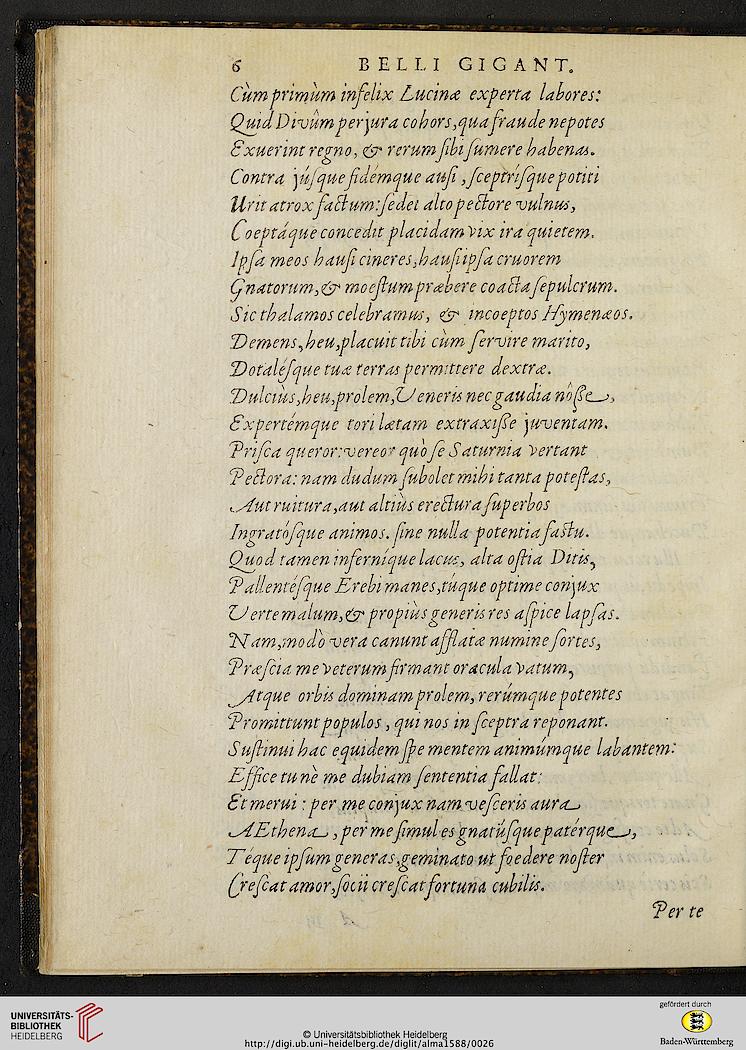 6 BELLI GIGANT.
Cùm primùm infelix Lucinæ experta labores:
Quid Divûm perjura cohors, qua fraude nepotes
Exuerint regno, & rerum sibi sumere habenas.
Contra júsque fidémque ausi, sceptrísque potiti
Urit atrox factum: sedet alto pectore vulnus,
Coeptáque concedit placidam vix ira quietem.
Ipsa meos hausi cineres, hausi ipsa cruorem
Gnatorum, & moestum præbere coacta sepulcrum.
Sic thalamos celebramus, & incoeptos Hymenæos.
Demens, heu, placuit tibi cùm servire marito,
Dotalésque tuæ terras permittere dextræ.
Dulciùs, heu, prolem, Veneris nec gaudia nôsse,
Expertémque tori lætam extraxisse juventam.
Prisca queror: vereor quò se Saturnia vertant
Pectora: nam dudum subolet mihi tanta potestas,
Aut ruitura, aut altiùs erectura superbos
Ingratósque animos. sine nulla potentia fastu.
Quod tamen inferníque lacus, alta ostia Ditis,
Pallentésque Erebi manes, túque optime conjux
Verte malum, & propiùs generis res aspice lapsas.
Nam, modò vera canunt afflatæ numine sortes,
Præscia me veterum firmant oracula vatum,
Atque orbis dominam prolem, rerúmque potentes
Promittunt populos, qui nos in sceptra reponant.
Sustinui hac equidem spe mentem animúmque labantem:
Effice tu nè me dubiam sententia fallat:
Et merui: per me conjux nam vesceris aura
AEtherea, per me simul es gnatúsque patérque,
Téque ipsum generas, geminato ut foedere noster
Crescat amor, socii crescat fortuna cubilis.
Per te
UNIVERSITÄTS-
BIBLIOTHEK
HEIDELBERG
© Universitätsbibliothek Heidelberg
http://digi.ub.uni-heidelberg.de/diglit/alma1588/0026
gefördert durch
Baden-Württemberg